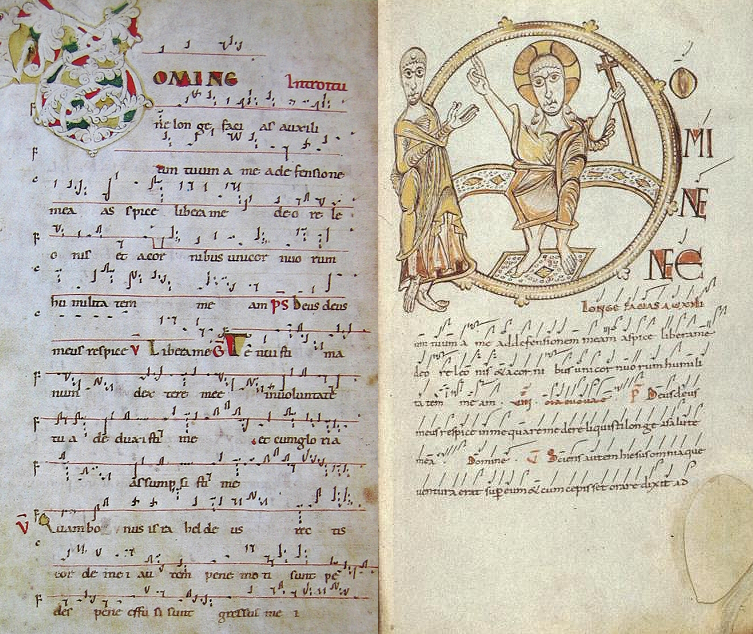 OMINE Introitu
ne lon ge faci as auxili
um tuum a me ad e fensione
mea as spice libera me de o re le
o nis et a cor nibus unicor nuo rum
hu milita tem me am PS Deus deus
meus respice V Libera me G Te nui sti ma
num dex tere mee in voluntate
tu a de dux i sti me et cum glo ria
as sump si sti me
V Quam bo nus is ra hel de us rec tis
cor de me i au tem pene mo ti sunt pe
des pene effu si sunt gressus me i
O
MI
NE
NE
LONGE FACIAS AUXILI
um tuum a me ad defensionem meam aspice libera me
deo re leo nis & a cor ni bus unicor nuo rum humili
ta tem me am P Deus deus
meus respice in me quare me dereliquisti longe a salute
mea Domine V Sciens autem hiesus omnia que
ventura erant super eum & cum cepisset orare dixit ad